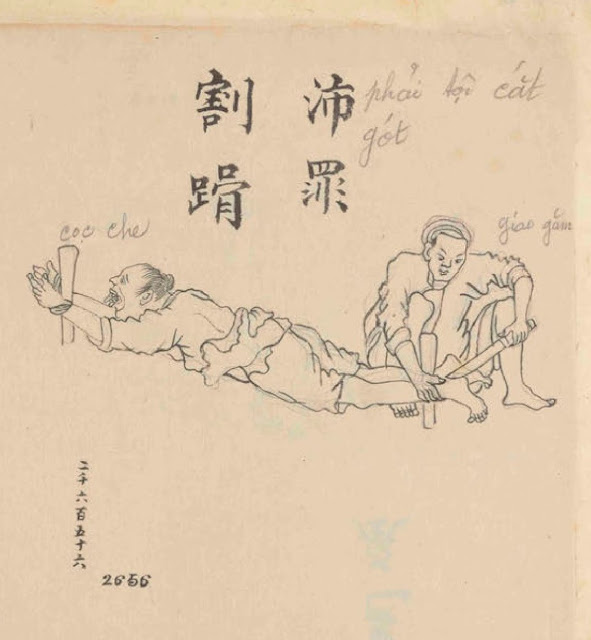 沛罪
割
phải tội cắt
gót
cọc che
giao găm
二千六百五十六
2656